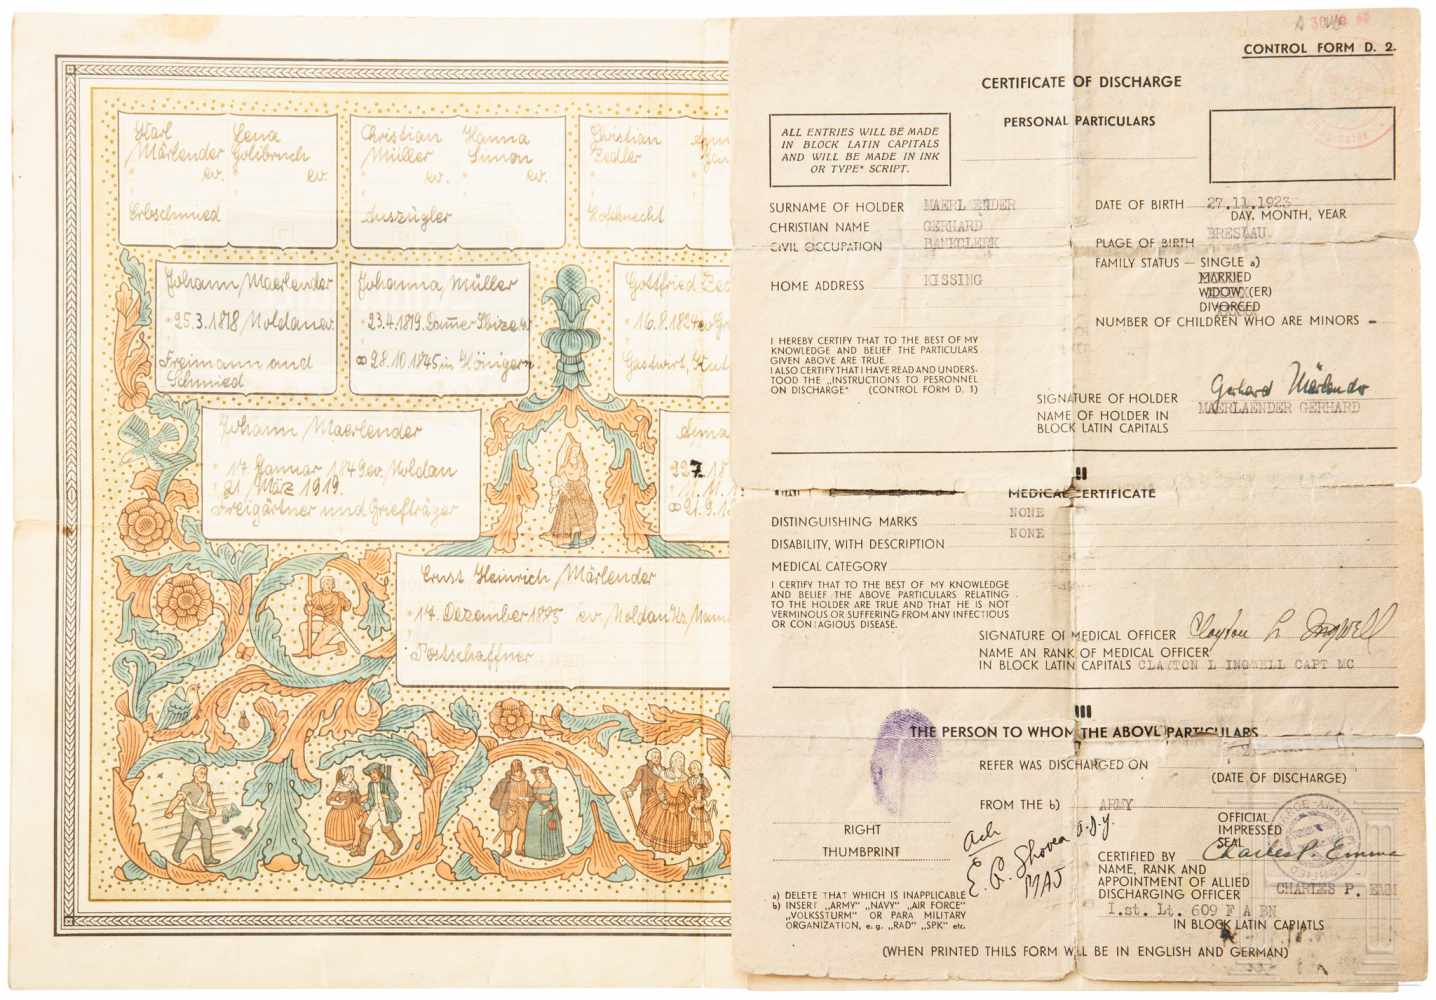 Karl
Märlender
ev.
Erbschmied
Lena
Golibruch
ev.
Christian
Müller
ev.
Auszügler
Hanna
Simon
ev.
Christian
Zedler
Johann Maerlender
25.3.1818 Noldau ev.
Freimann und
Schmied
Johanna Müller
23.4.1819.
∞ 28.10.1845 in Hönigern
Gottfried
16.8.
Gastwirt,
Johann Maerlender
17. Januar 1849 ev. Noldau
21. März 1919.
Freigärtner und
Ernst Heinrich Märlender
17. Dezember 1895 ev. Noldau
Postschaffner
CONTROL FORM D. 2.
CERTIFICATE OF DISCHARGE
PERSONAL PARTICULARS
ALL ENTRIES WILL BE MADE
IN BLOCK LATIN CAPITALS
AND WILL BE MADE IN INK
OR TYPE* SCRIPT.
SURNAME OF HOLDER MAERLAENDER
CHRISTIAN NAME GERHARD
CIVIL OCCUPATION BANKCLERK
HOME ADDRESS KISSING
DATE OF BIRTH 27.11.1923
DAY, MONTH, YEAR
BRESLAU
PLAGE OF BIRTH
FAMILY STATUS — SINGLE a)
MARRIED
WIDOW (ER)
DIVORCED
NUMBER OF CHILDREN WHO ARE MINORS -
I HEREBY CERTIFY THAT TO THE BEST OF MY
KNOWLEDGE AND BELIEF THE PARTICULARS
GIVEN ABOVE ARE TRUE.
I ALSO CERTIFY THAT I HAVE READ AND UNDERS-
TOOD THE „INSTRUCTIONS TO PESRONNEL
ON DISCHARGE" (CONTROL FORM D. 1)
Gerhard Märlender
SIGNATURE OF HOLDER
NAME OF HOLDER IN MAERLAENDER GERHARD
BLOCK LATIN CAPITALS
II
MEDICAL CERTIFICATE
DISTINGUISHING MARKS NONE
DISABILITY, WITH DESCRIPTION NONE
MEDICAL CATEGORY
I CERTIFY THAT TO THE BEST OF MY KNOWLEDGE
AND BELIEF THE ABOVE PARTICULARS RELATING
TO THE HOLDER ARE TRUE AND THAT HE IS NOT
VERMINOUS OR SUFFERING FROM ANY INFECTIOUS
OR CONTAGIOUS DISEASE.
SIGNATURE OF MEDICAL OFFICER Clayton L Ingwell
NAME AN RANK OF MEDICAL OFFICER
IN BLOCK LATIN CAPITALS CLAYTON L INGWELL CAPT MC
III
THE PERSON TO WHOM THE ABOVE PARTICULARS
REFER WAS DISCHARGED ON
(DATE OF DISCHARGE)
FROM THE b) ARMY
RIGHT
THUMBPRINT
MAJ
OFFICIAL
IMPRESSED
SEAL
Charles P. Emma
CERTIFIED BY
NAME, RANK AND
APPOINTMENT OF ALLIED
DISCHARGING OFFICER CHARLES P.
I.st. Lt. 609 F A BN
IN BLOCK LATIN CAPIATLS
a) DELETE THAT WHICH IS INAPPLICABLE
b) INSERT „ARMY" „NAVY" „AIR FORCE"
„VOLKSSTURM" OR PARA MILITARY
ORGANIZATION, e. g. „RAD" „SPK" etc.
(WHEN PRINTED THILS FORM WILL BE IN ENGLISH AND GERMAN)